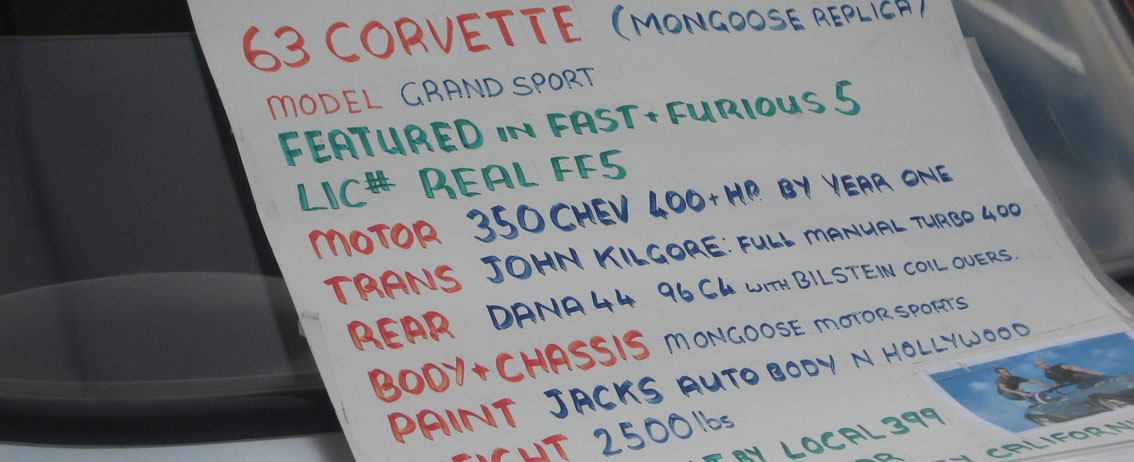 63 CORVETTE (MONGOOSE REPLICA)
MODEL GRAND SPORT
FEATURED IN FAST + FURIOUS 5
LIC# REAL FF5
MOTOR 350 CHEV 400+ HP. BY YEAR ONE
TRANS JOHN KILGORE: FULL MANUAL TURBO 400
REAR DANA 44 96 C4 WITH BILSTEIN COIL OVERS.
BODY + CHASSIS MONGOOSE MOTORSPORTS
PAINT JACKS AUTO BODY N HOLLYWOOD
2500 lbs
BY LOCAL 399
CALIFORNI